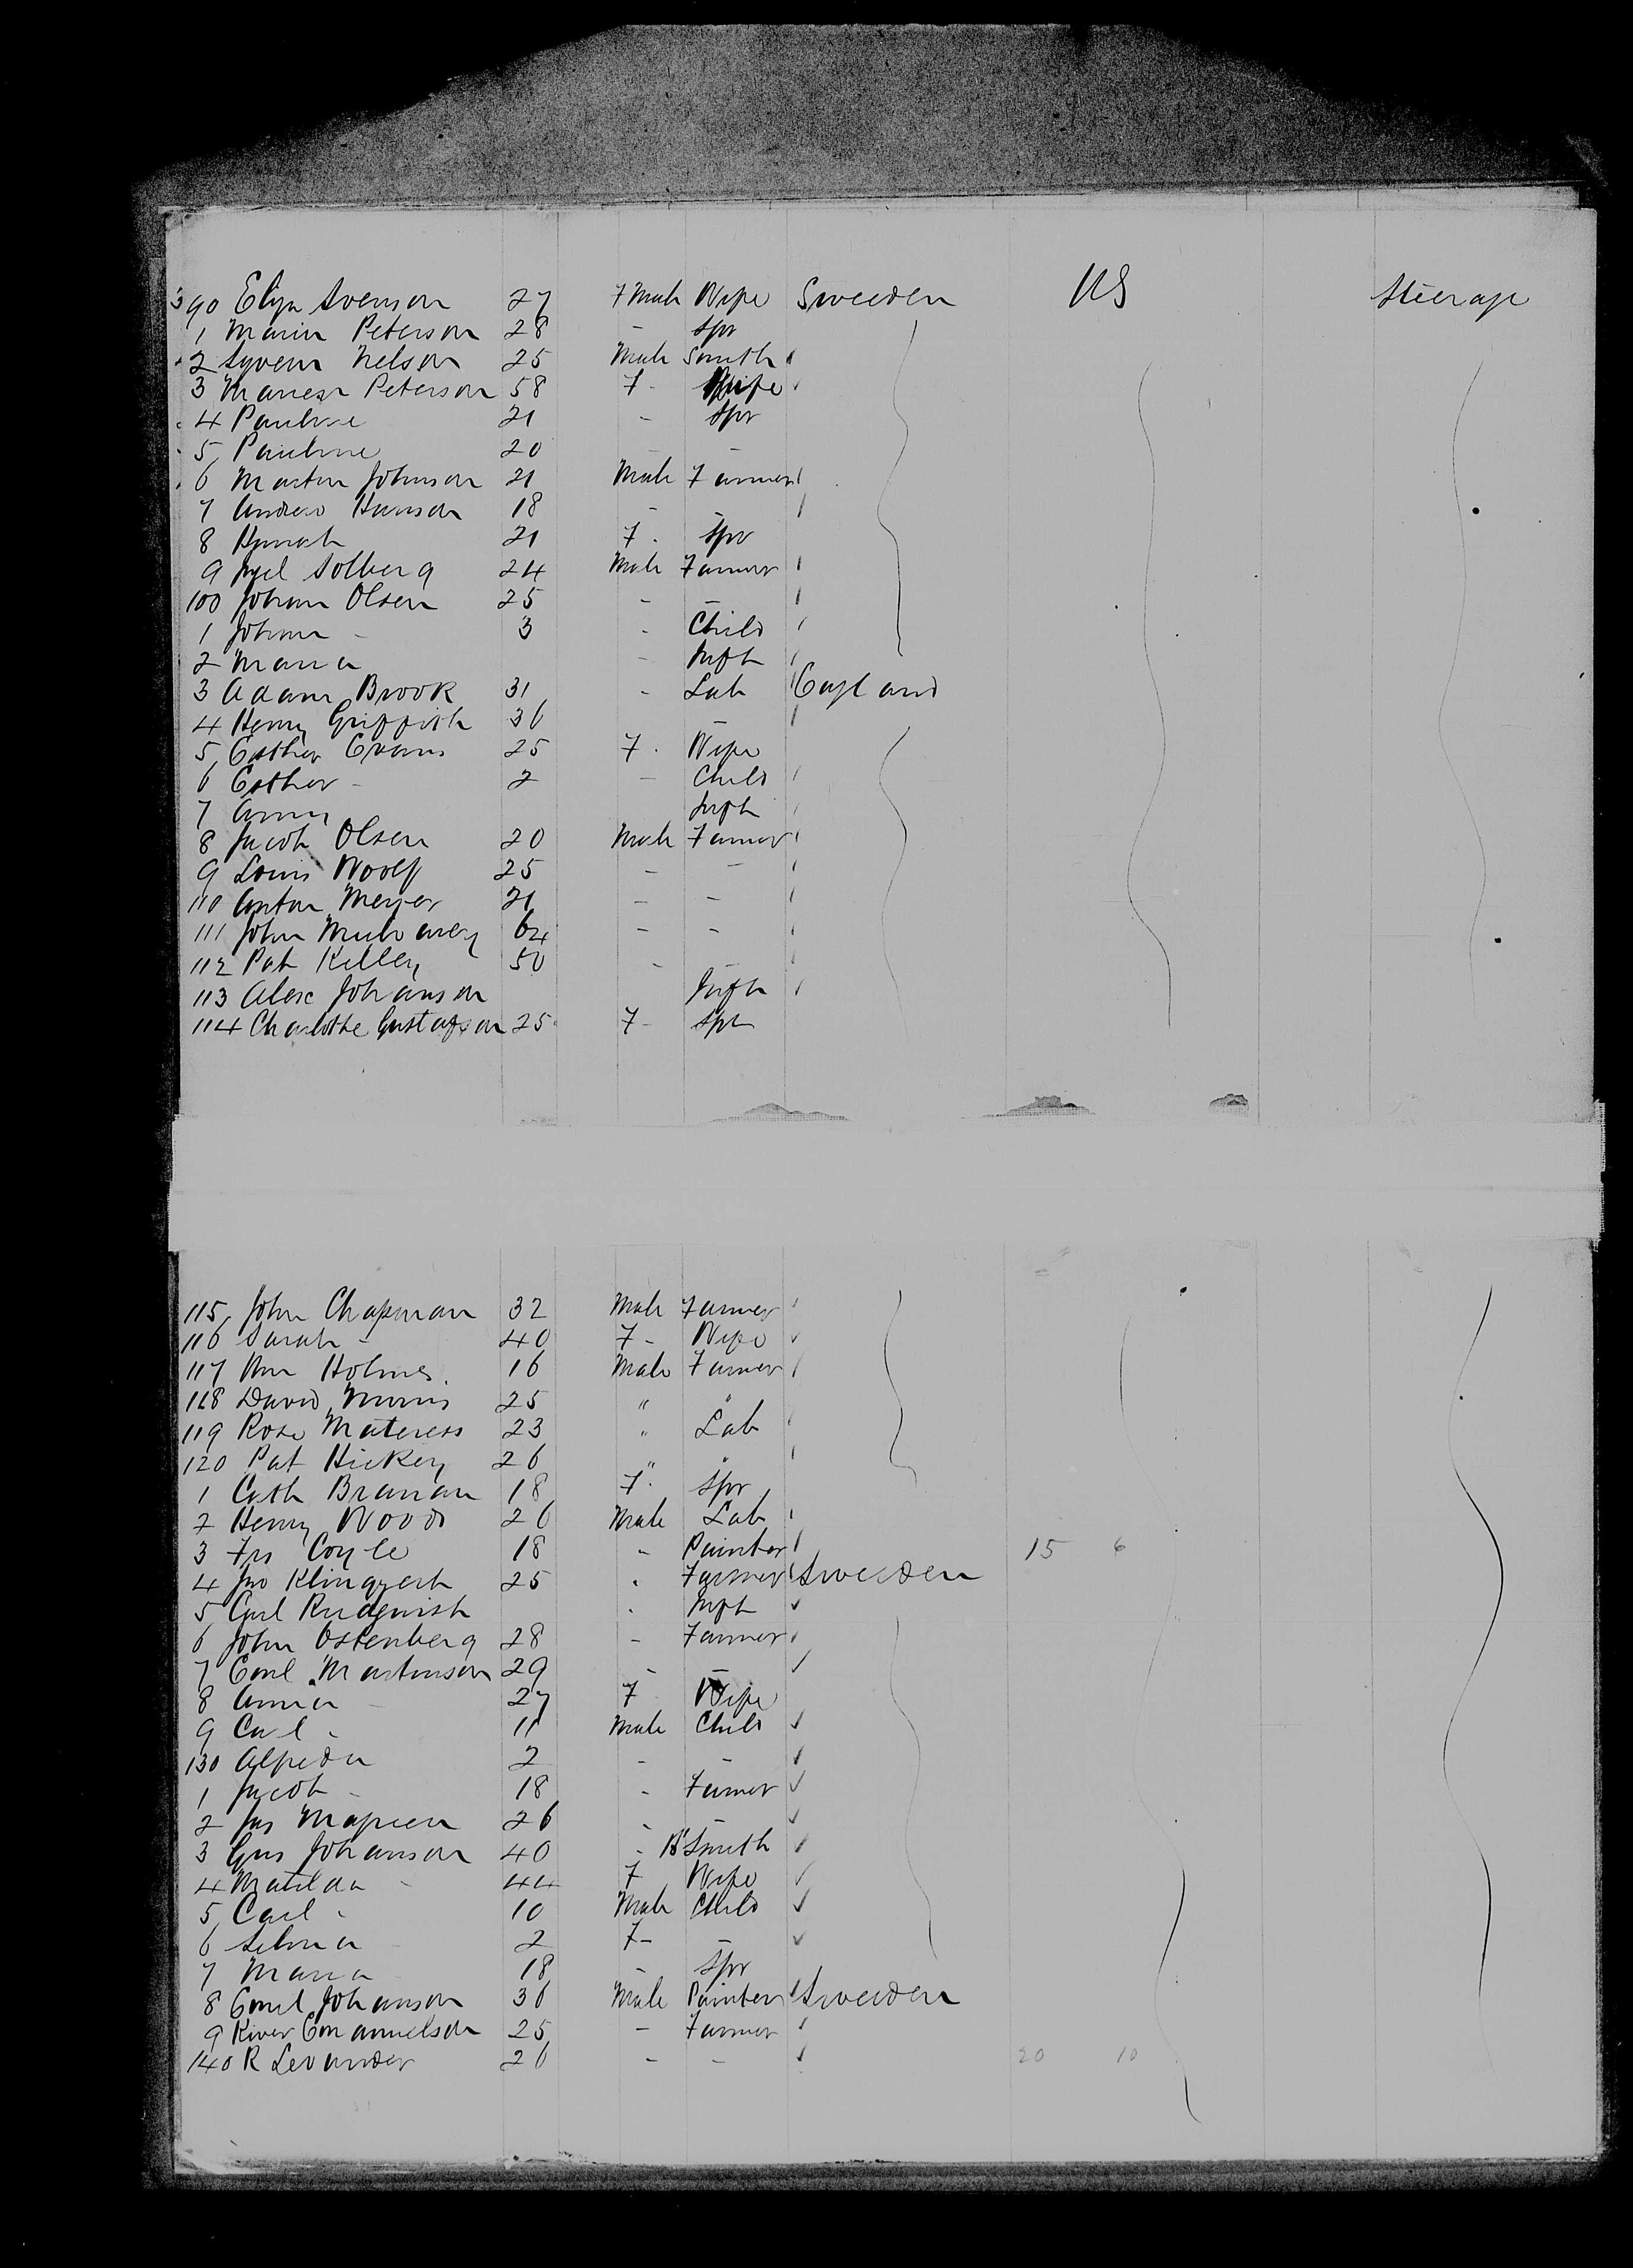 390 Eliza Svenson 27 F Male Wife Sweeden US Steerage
1 Maria Peterson 28 - Spr
2 Nelson 25 Male Smith
3 Peterson 58 F - Wife
4 Pauline 21 - Spr
5 Pauline 20 - -
6 Martin Johnson 21 Male Farmer
7 Andrew Hanson 18 - -
8 21 F - Spr
9 Solberg 24 Male Farmer
100 Johan Olsen 25 - -
1 Johan - 3 - Child
2 Maria - Inft
3 Adam Brook 31 - Lab England
4 Henry Griffith 36 -
5 Esther Evans 25 F - Wife
6 Esther - 2 - Child
7 Inft
8 Jacob Olsen 20 Male Farmer
9 Louis Woolf 25 - -
110 Anton Meyer 21 - -
111 John 64 - -
112 Pat Kelley 50 - -
113 Alex Johanson Inft
114 Charlotte Gustafson 25 F - Spr
115 John Chapman 32 Male Farmer
116 Sarah - 40 F - Wife
117 Wm Holmes 16 Male Farmer
118 David Morris 25 " "
119 Rose 23 " Lab
120 Pat Hickey 26 " "
1 Cath Branan 18 F - Spr
2 Henry Wood 26 Male Lab
3 Frs Coyle 18 - Painter 15 6
4 Jno 25 - Farmer Sweeden
5 Carl Inft
6 John Ostenberg 28 - Farmer
7 Martinson 29 - -
8 Anna - 27 F Wife
9 Carl - 11 Male Child
130 2 - -
1 Jacob - 18 - Farmer
2 Jas 26 - -
3 Gus Johanson 40 - B Smith
4 Matilda - 44 F Wife
5 Carl - 10 Male Child
6 Selma - 2 F - -
7 Maria 18 - Spr
8 Emil Johanson 36 Male Painter Sweeden
9 25 - Farmer
140 R Levander 26 - - 20 10